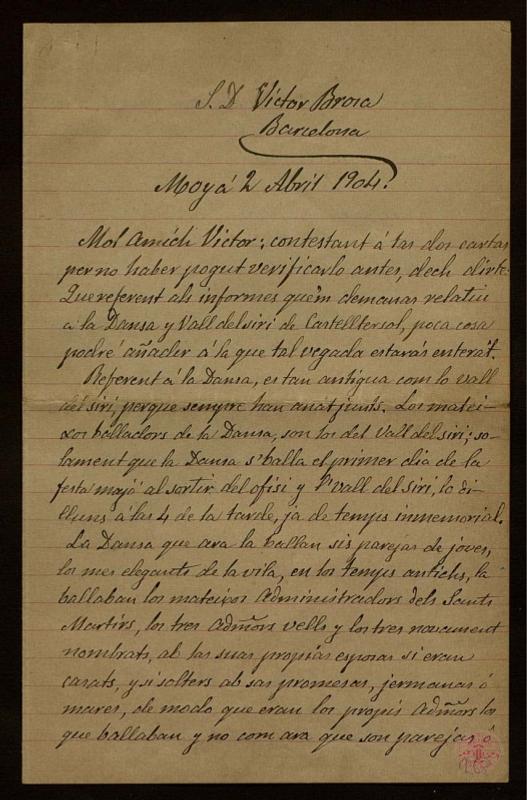 S. D Victor Brosa
Barcelona
Moyá 2 Abril 1904.
Mol Amich Victor; contestant á las dos cartas
per no haber pogut verificarlo antes, dech dirte:
Que referent als informes que'm demanas relatiu
á la Dansa y Vall del siri de Castelltersol, poca cosa
podré añader á la que tal vegada estarás enterat.
Referent á la Dansa, es tan antigua com lo vall
del siri, perque sempre han anat junts. Los matei-
xos balladors de la Dansa, son los del Vall del siri; so-
lament que la Dansa s'balla el primer dia de la
festa majó al sortir del ofisi y l'Vall del Siri, lo di-
lluns á las 4 de la tarde, ja de temps inmemorial.
La Dansa que ara la ballan sis parejas de joves,
los mes elegants de la vila, en los temps antichs, la
ballaban los mateixos Administradors dels Sants
Martirs, los tres Admõrs vells y los tres novament
nombrats, ab las suas propias esposas si eran
casats, y si solters ab sas promesas, jermanas ó
mares, de modo que eran los propis Admõrs los
que ballaban y no com ara que son parejas ó